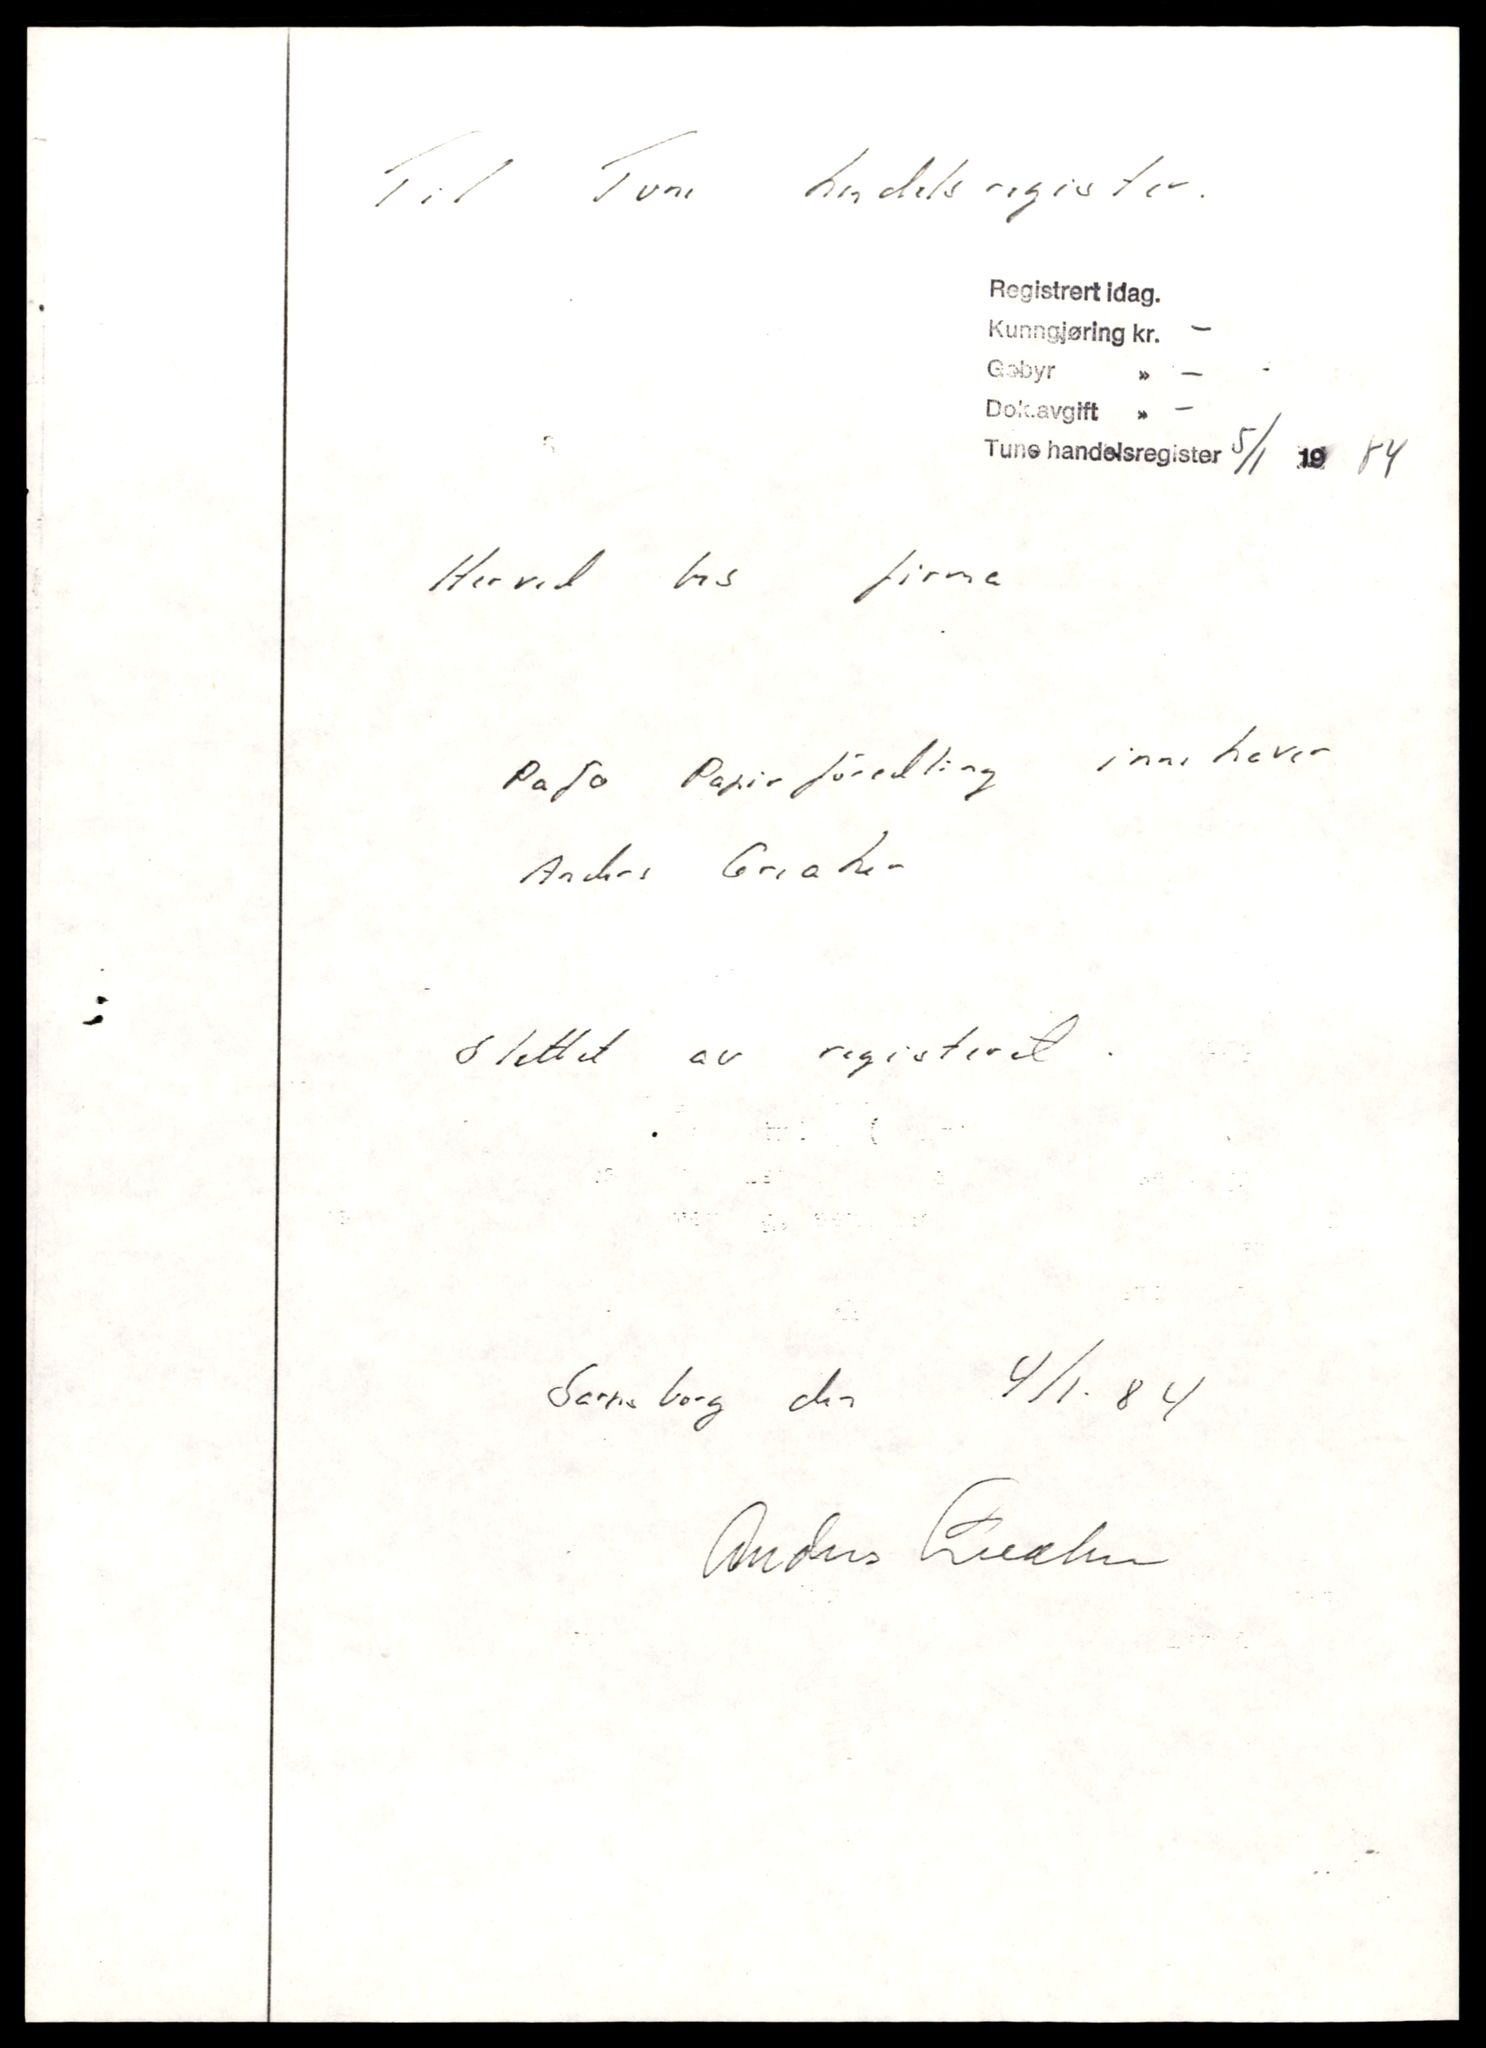 Til Tune handelsregister.
Registrert idag.
Kunngjøring kr. –
Gebyr » –
Dok.avgift » –
Tune handelsregister 5/1 19 84
Herved bes firma
Pafo Papirforedling innehaver
Anders Greaker
Slettet av registeret.
Sarpsborg den 4/1. 84
Anders Greaker